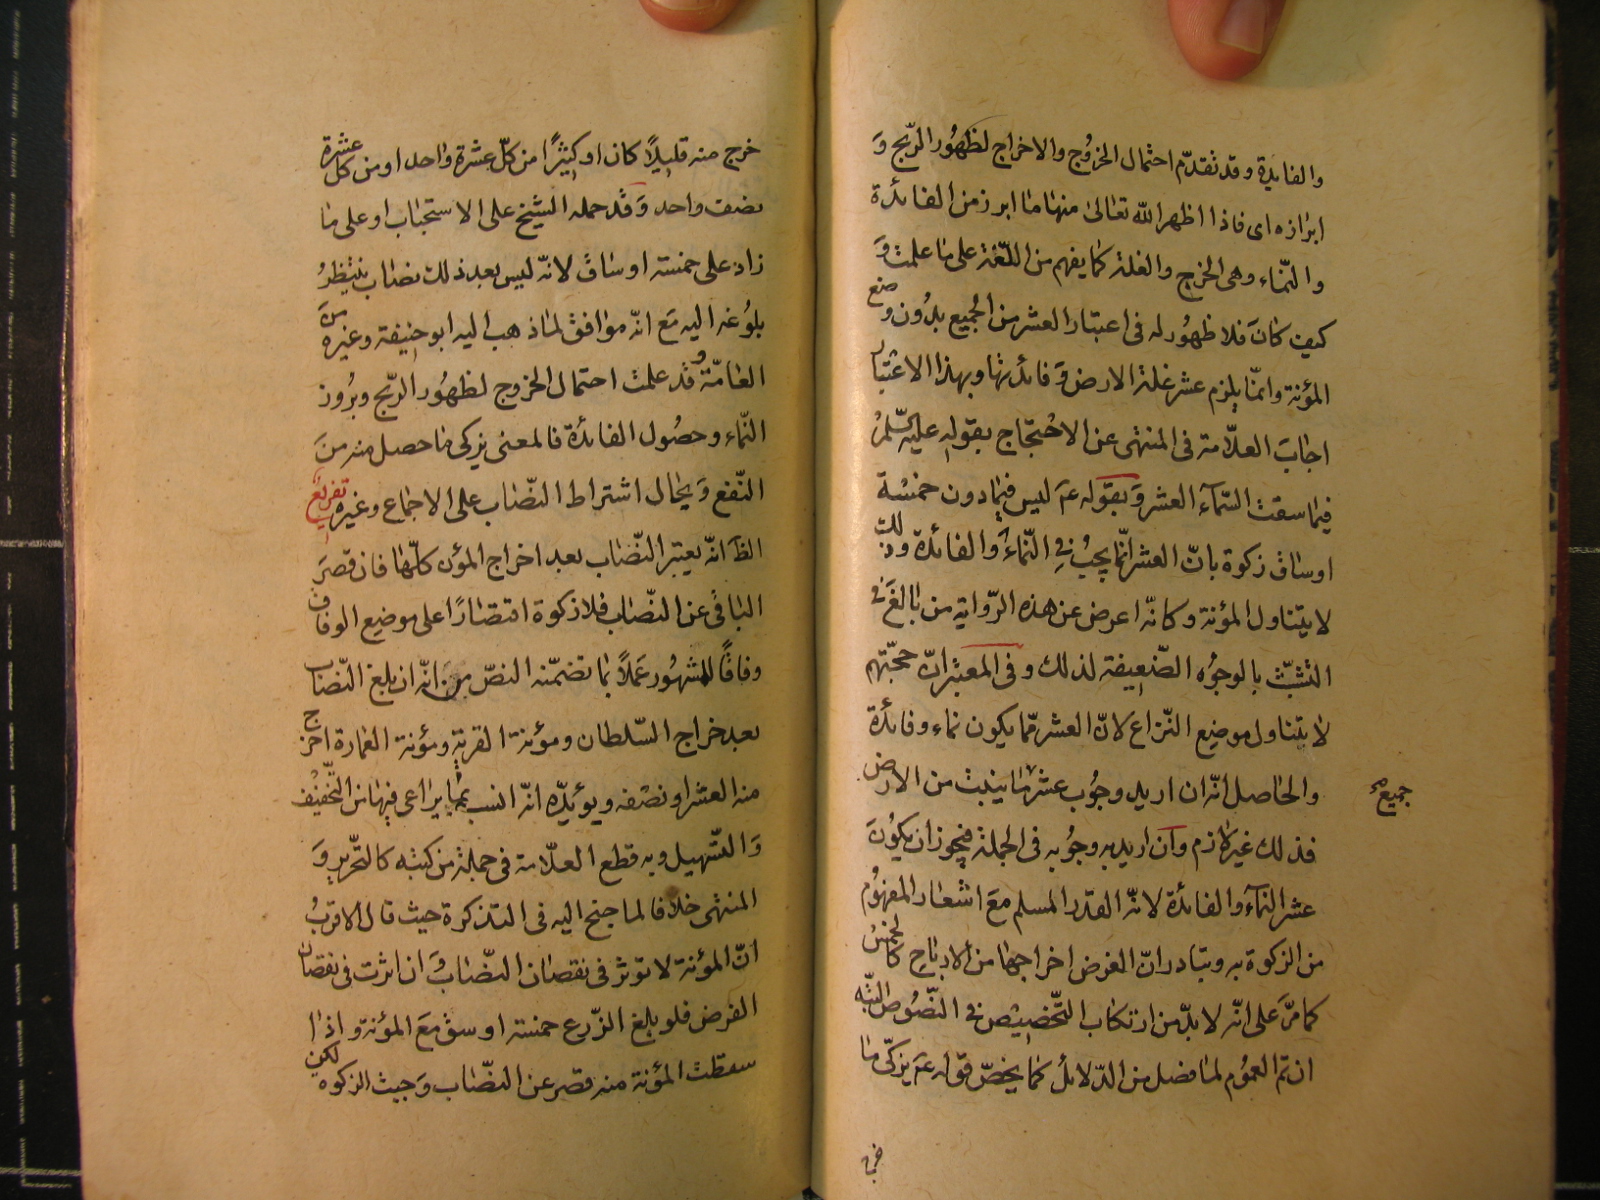 والفايدة وقد تقدّم احتمال الخروج والاخراج لظهور الرّبح و
ابرازه اى فاذا اظهر الله تعالى منها ما ابرز من الفائدة
والنّماء وهى الخرج والغلة كما يفهم من اللّغة على ما علمت و
كيف كان فلا ظهور له فى اعتبار العشر من الجميع بدون وضع
المؤنة وانّما يلزم عشر غلة الارض وفائدتها وبهذا الاعتبار
اجاب العلّامة فى المنتهى عن الاحتجاج بقوله عليه السّلم
فيما سقت السّمآء العشر وبقوله عم ليس فيما دون خمسة
اوساق زكوة بانّ العشر انّما يجب فى النّماء والفائدة وذلك
لا يتناول المؤنة وكانّه اعرض عن هذه الرّواية من بالغ فى
التشبّث بالوجوه الضّعيفة لذلك وفى المعتبر انّ حجّتهم
لا يتناول موضع النّزاع لانّ العشر ممّا يكون نماء وفائدة
والحاصل انّه ان اريد وجوب عشر ما ينبت من الارض
جميع صح
فذلك غير لازم وان اريد به وجوبه فى الجملة فيجوز ان يكون
عشر النمآء والفائدة لانّه القدر المسلم مع اشعار المفهوم
من الزكوة به وتبادر انّ الغرض اخراجها من الارباح كالخمس
كما مرّ على انّه لا بدّ من ارتكاب التّخصيص فى النّصوص
ان تمّ العموم لما فضل من الدّلائل كما يخصّ قوله عم يزكّى ما
خرج منه قليلًا كان او كثيرًا من كلّ عشرة واحد او من كل عشرة
نصف واحد وقد حمله الشيخ على الاستحباب او على ما
زاد على خمسة اوساق لانّه ليس بعد ذلك نصاب ينتظر
بلوغه اليه مع انّه موافق لما ذهب اليه ابو حنيفة وغيره من
العامّة وقد علمت احتمال الخروج لظهور الرّبح وبروز
النّماء وحصول الفائدة فالمعنى يزكى ما حصل منه من
النّفع ويحال اشتراط النّصاب على الاجماع وغيره تفريع
الظّ انّه يعتبر النّصاب بعد اخراج المؤن كلّها فان قصر
الباقى عن النّصاب فلا زكوة اقتصارًا على موضع الوفاق
وفاقًا للمشهور عملًا بما تضمّنه النصّ من انّه ان بلغ النّصاب
بعد خراج السّلطان ومؤنة القرية ومؤنة العمارة اخرج
منه العشر او نصفه ويؤيّده انّه انسب بما يراعى فيها من التّخفيف
والتسهيل وبه قطع العلّامة فى جملة من كتبه كالتحرير و
المنتهى خلافا لما جنح اليه فى التذكرة حيث قال الاقرب
انّ المؤنة لا توثر فى نقصان النّصاب وان اثرت فى نقصان
الفرض فلو بلغ الزّرع خمسة اوسق مع المؤنة واذا
سقطت المؤنة منه قصر عن النّصاب وجبت الزكوة لكن